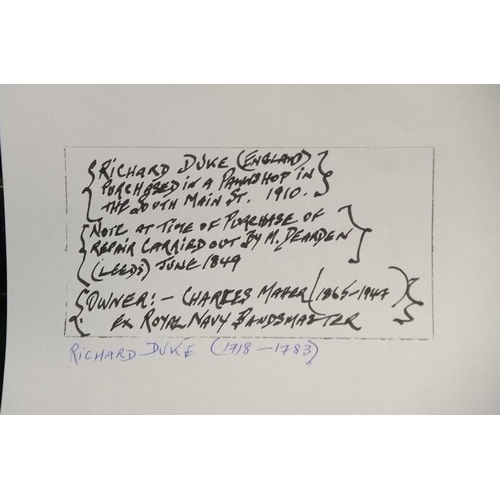 {RICHARD DUKE (ENGLAND)}
{PURCHASED IN A PAWNSHOP IN}
{THE SOUTH MAIN ST. 1910.}
[NOTE AT TIME OF PURCHASE OF
REPAIR CARRIED OUT BY H. DEARDEN
(LEEDS) JUNE 1849
{OWNER:- CHARLES MAHER (1865-1947)}
EX ROYAL NAVY BANDSMASTER
RICHARD DUKE (1718-1783)